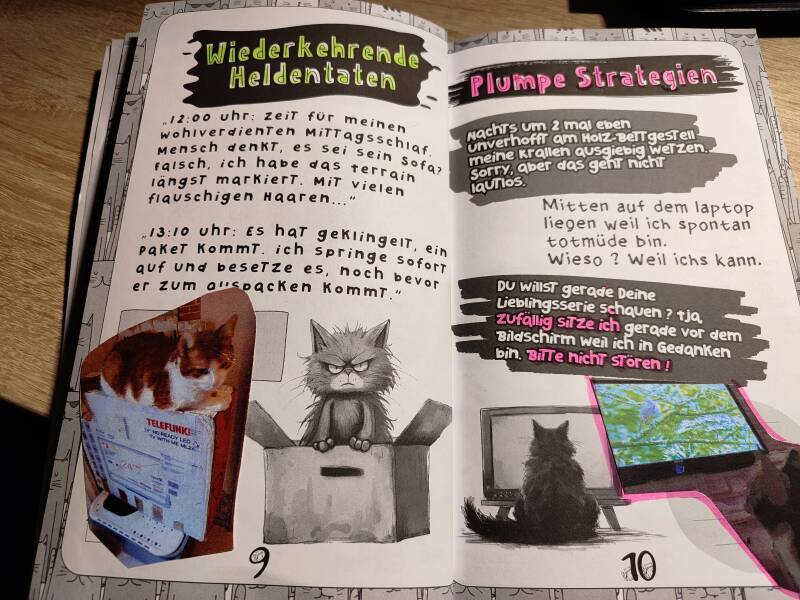 Wiederkehrende
Heldentaten
„12:00 Uhr: Zeit für meinen
wohlverdienten Mittagsschlaf.
Mensch denkt, es sei sein Sofa?
Falsch, ich habe das Terrain
längst markiert. Mit vielen
flauschigen Haaren..."
„13:10 Uhr: Es hat geklingelt, ein
Paket kommt. Ich springe sofort
auf und besetze es, noch bevor
er zum auspacken kommt."
TELEFUNK
HD READY LED
TV WITH
9
Plumpe Strategien
Nachts um 2 mal eben
unverhofft am Holz-Bettgestell
meine Krallen ausgiebig wetzen.
Sorry, aber das geht nicht
lautlos.
Mitten auf dem laptop
liegen weil ich spontan
totmüde bin.
Wieso ? Weil ichs kann.
Du willst gerade Deine
Lieblingsserie schauen ? tja,
zufällig sitze ich gerade vor dem
Bildschirm weil ich in Gedanken
bin. Bitte nicht stören !
10